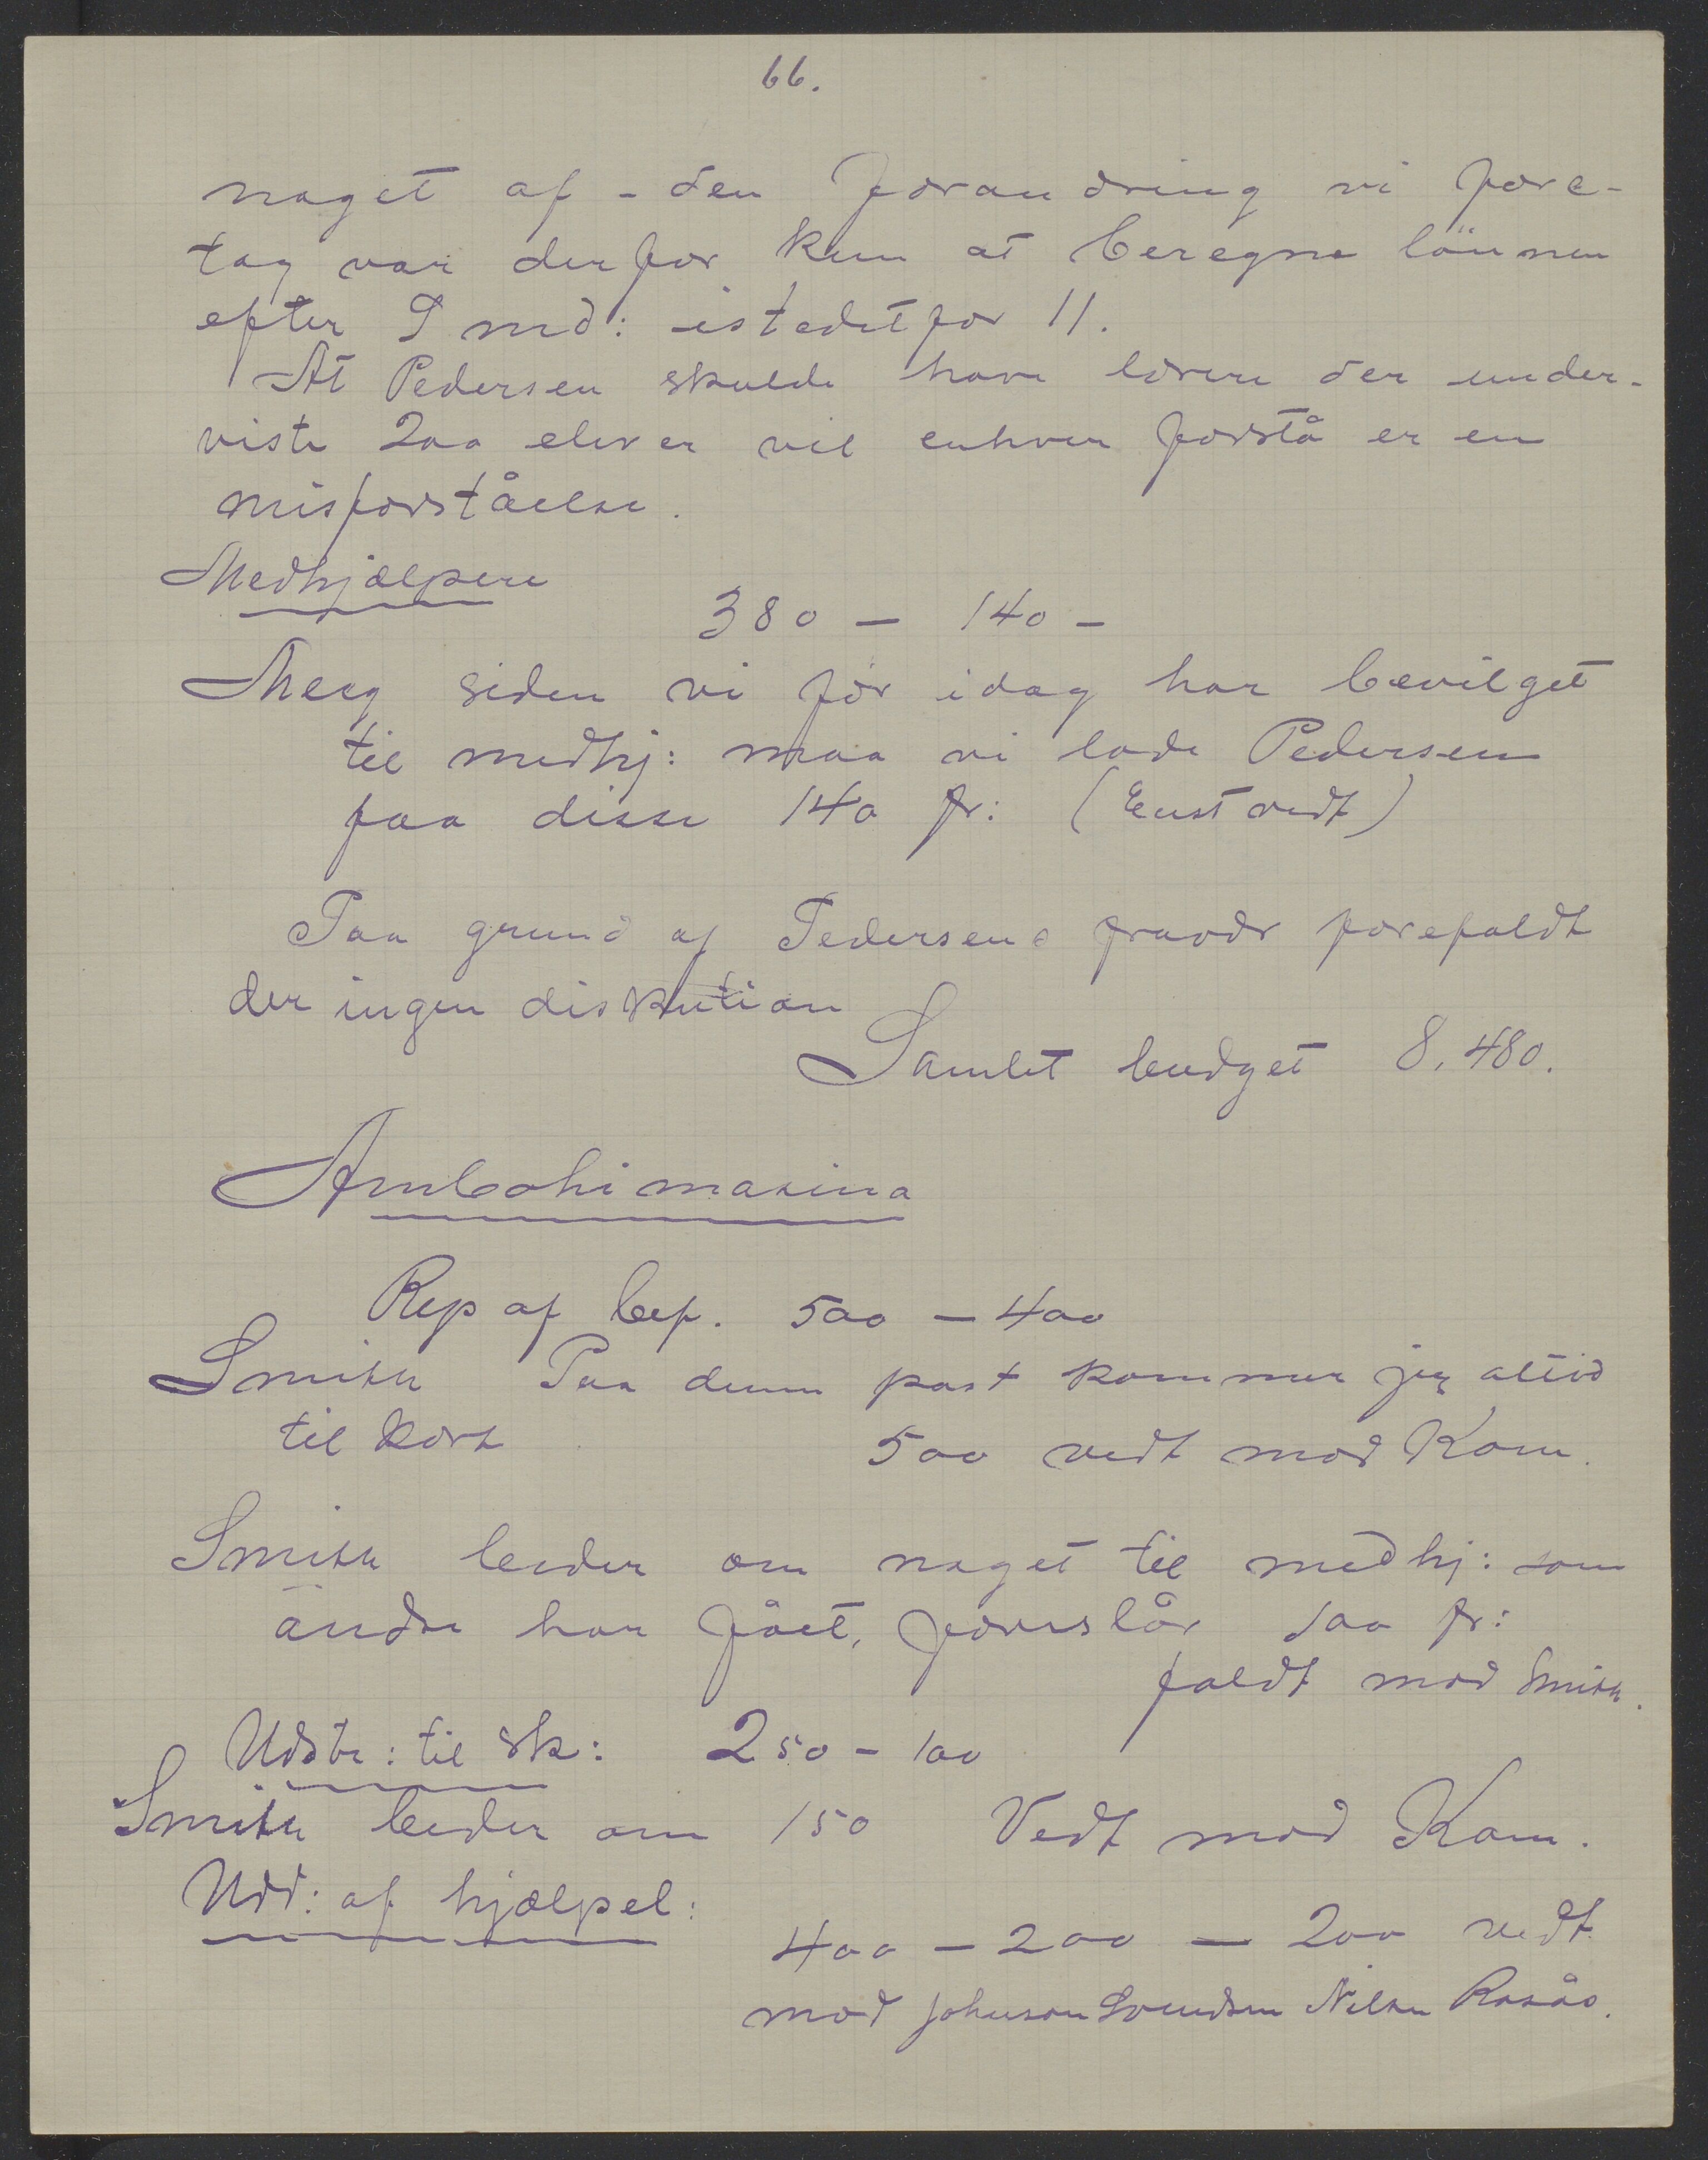 66.
noget af - den forandring vi fore-
tog var derfor kun at beregne lönnen
efter 9 md: istedetfor 11.
At Pedersen skulde have lærere der under-
viste 200 elever vil enhver forstå er en
misforståelse.
Medhjælpere
380 - 140 -
Meeg siden vi før idag har bevilget
til medhj: maa vi lade Pedersen
faa disse 140 fr: (Enst vedt)
Paa grund af Pedersens fravær forefaldt
der ingen diskution
Samlet budget 8.480.
Ambohimasina
Rep af bef. 500 - 400
Smith Paa denne post kommer jeg altid
til kort
500 vedt mod Kom.
Smith beder om noget til medhj: som
andre har fået, foreslår 100 fr:
faldt mod Smith.
Udstr: til sk: 250 - 100
Smith beder om 150 Vedt mod Kom.
Udd: af hjælpel:
400 - 200 - 200 vedt
mod Johnson Svendsen Nilsen Rosås.